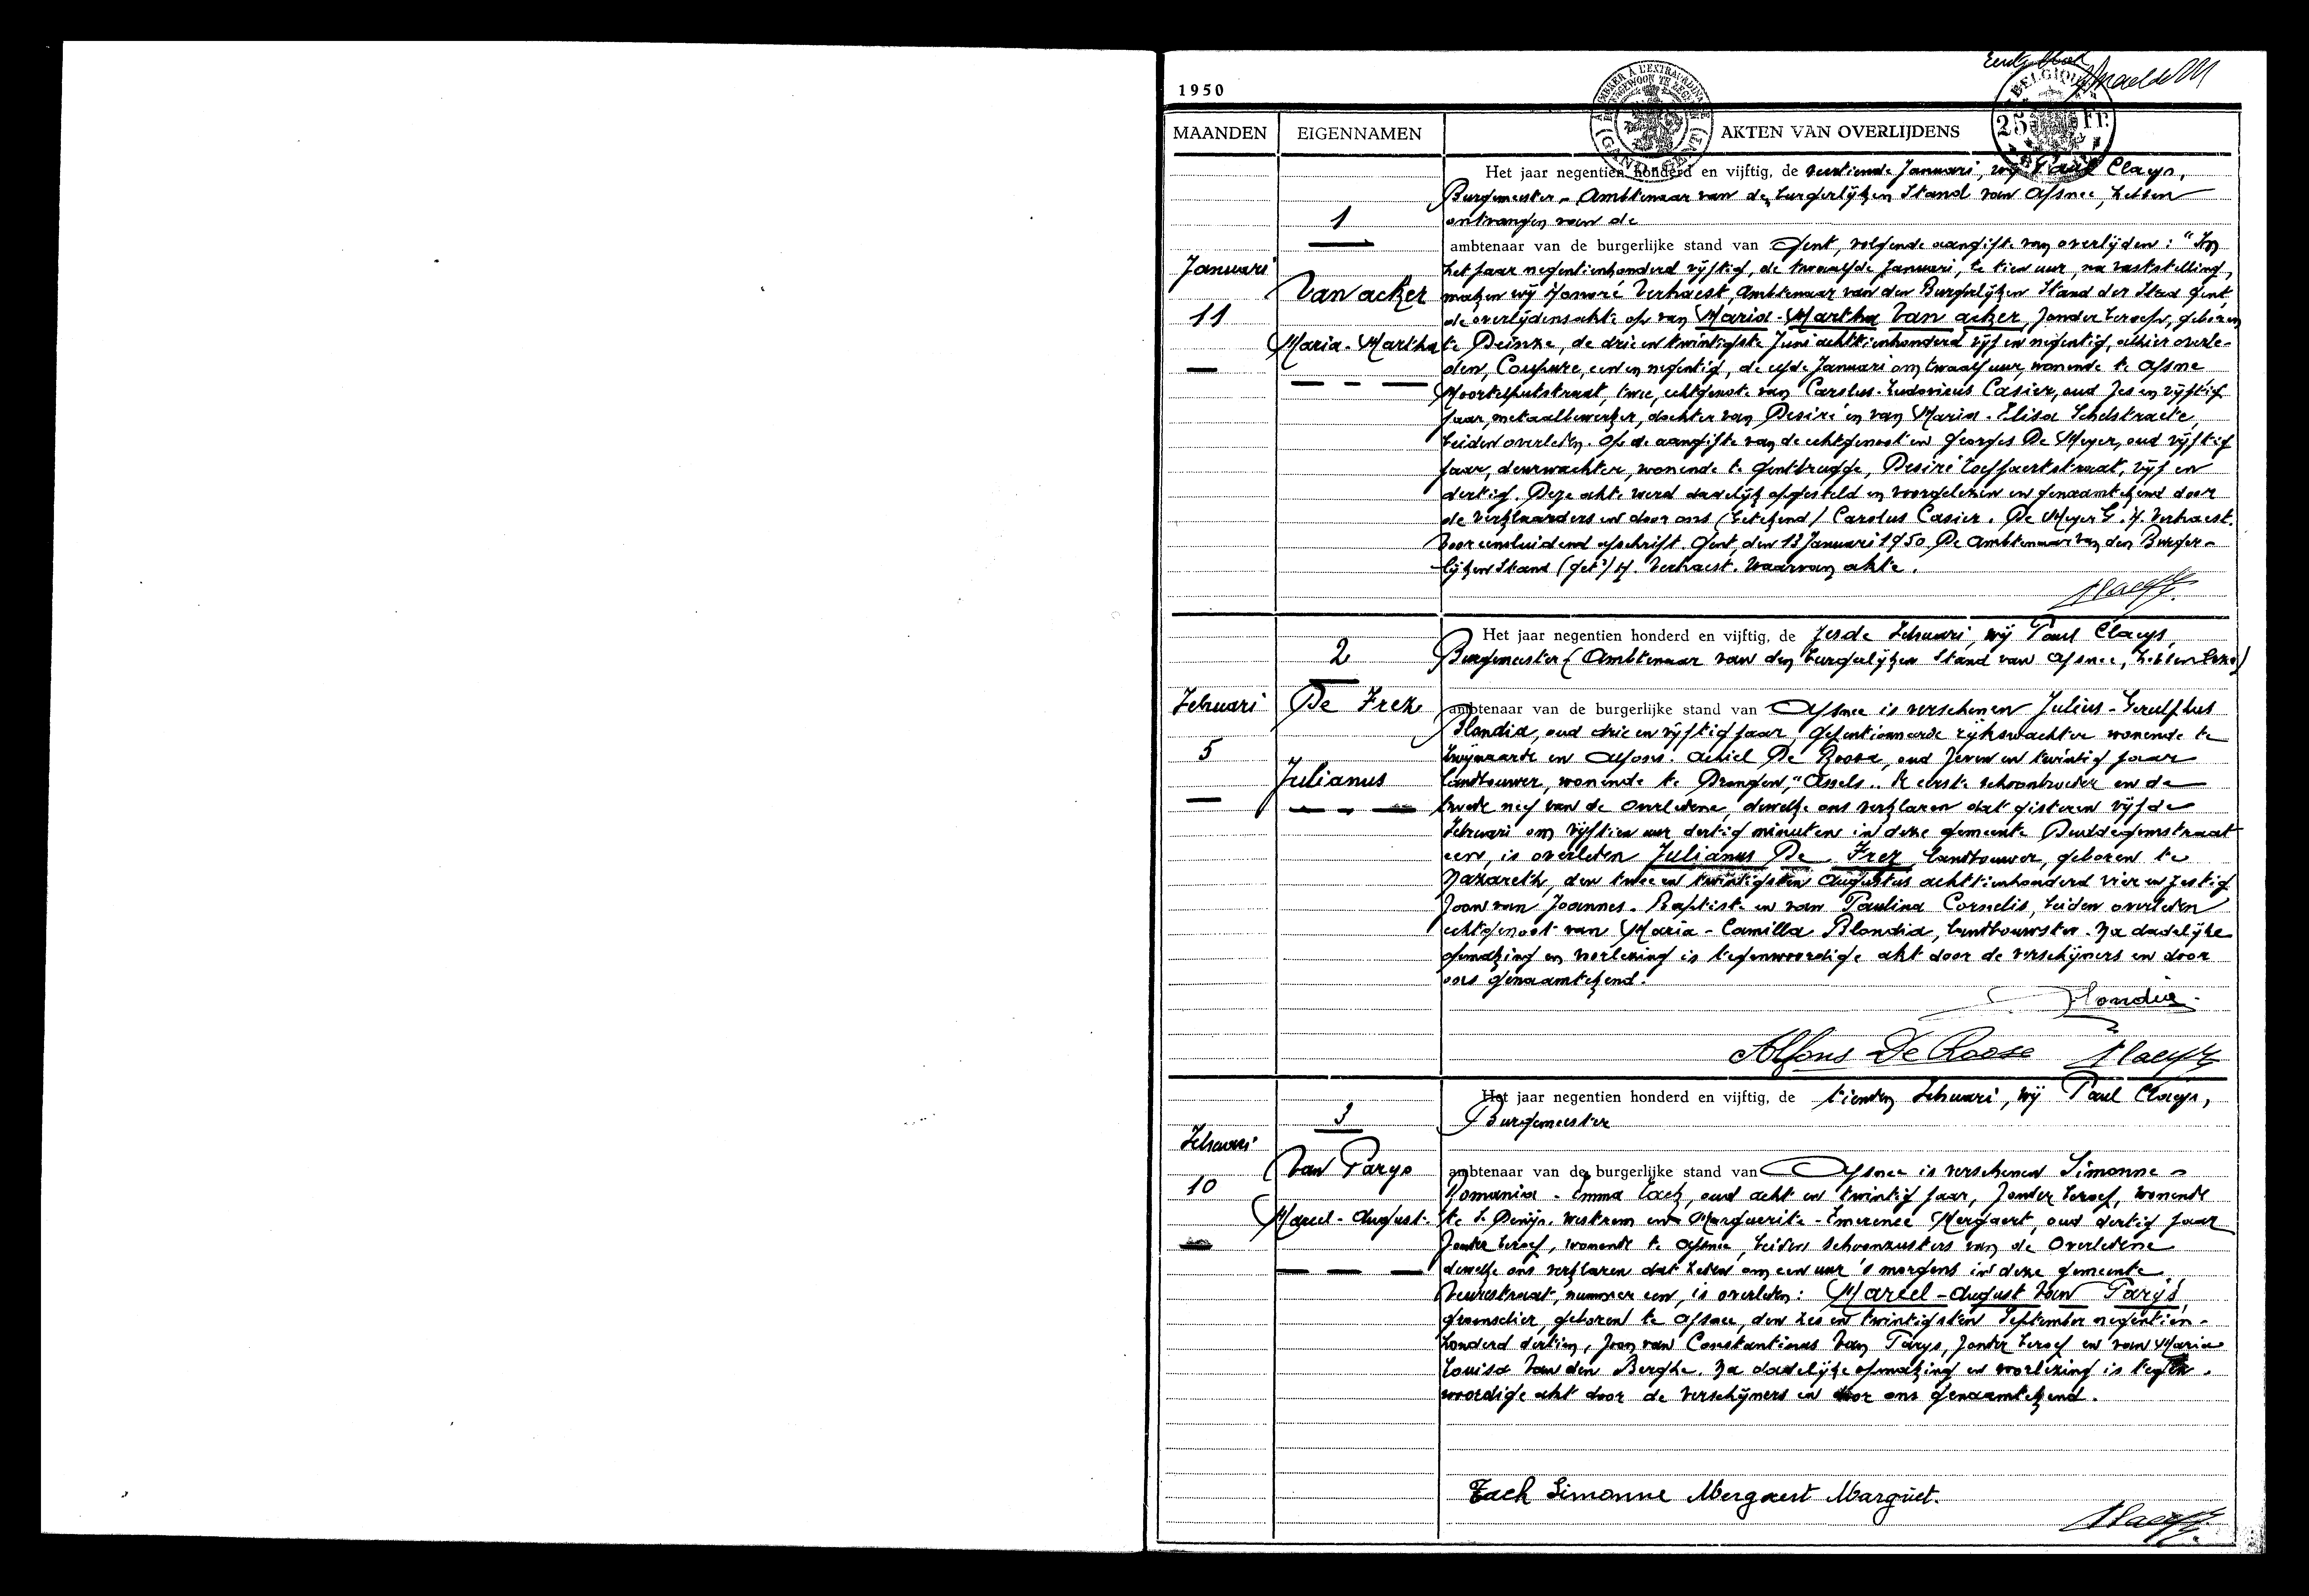 Eerste blad
1950
BELGIQUE
25 Fr.
MAANDEN EIGENNAMEN AKTEN VAN OVERLIJDENS
Het jaar negentien honderd en vijftig, de veertiende Januari, wij Paul Claeys,
Burgemeester - Ambtenaar van den burgerlijken Stand van Afsnee, hebben
1
ontvangen van de
ambtenaar van de burgerlijke stand van Gent, volgende aangifte van overlijden: "In
Januari
het jaar negentienhonderd vijftig, de twaalfde Januari, te tien uur, na vaststelling,
Van acker
maken wij Honoré Verhaest, Ambtenaar van den Burgerlijken Stand der Stad Gent,
11
de overlijdensakte op van Maria-Martha Van acker, zonder beroep, geboren
Maria-Martha
te Deinze, de drie en twintigste Juni achttienhonderd vijf en negentig, alhier overle-
den, Coupure, een en negentig, de elfde Januari om twaalf uur, wonende te Afsne
Moortelputstraat, twee, echtgenote van Carolus-Ludovicus Casier, oud zes en vijftig
jaar, metaalbewerker, dochter van Desiré en van Maria-Elisa Schelstraete,
beiden overleden. Op de aangifte van de echtgenoot en Georges De Meyer, oud vijftig
jaar, deurwachter, wonende te Gentbrugge, Desiré Toeffaertstraat, vijf en
dertig. Deze akte werd dadelijk opgesteld en voorgelezen en genaamtekend door
de verklaarders en door ons (getekend) Carolus Casier. De Meyer G. H. Verhaest.
Voor eensluidend afschrift. Gent, den 13 Januari 1950. De Ambtenaar van den Burger-
lijken Stand (get.) H. Verhaest. Waarvan akte.
Claeys
Het jaar negentien honderd en vijftig, de zesde Februari, wij Paul Claeys,
2
Burgemeester (Ambtenaar van den burgerlijken Stand van Afsnee, hebben
Februari
De Frek
ambtenaar van de burgerlijke stand van Afsnee is verschenen Julius-Gerulphus
Blondia, oud drie en vijftig jaar, gepentionneerde rijkswachter wonende te
5
Zwijnaarde en Alfons-Achiel De Roose, oud zeven en twintig jaar
Julianus
landbouwer, wonende te Drongen, "Assels". De eerste schoonbroeder en de
tweede neef van de overledene, dewelke ons verklaren dat gisteren vijfde
Februari om vijftien uur dertig minuten in deze gemeente Duddegemstraat
een, is overleden Julianus De Frek, landbouwer, geboren te
Nazareth, den twee en twintigsten Augustus achttienhonderd vier en zestig
zoon van Joannes-Baptiste en van Paulina Cornelis, beiden overleden
echtgenoot van Maria-Camilla Blondia, landbouwster. Na dadelijke
opmaking en voorlezing is tegenwoordige akt door de verschijners en door
ons genaamtekend.
Blondia
Alfons De Roose Claeys
Het jaar negentien honderd en vijftig, de tienden Februari, wij Paul Claeys,
3
Burgemeester
Februari
Van Parys
ambtenaar van de burgerlijke stand van Afsnee is verschenen Simonne-
10
Romania-Emma Zach, oud acht en twintig jaar, zonder beroep, wonende
Marcel-August
te St Denijs-Westrem en Marguerite-Emerence Mergaert, oud dertig jaar
zonder beroep, wonende te Afsnee, beiden schoonzusters van de overledene
dewelke ons verklaren dat heden om een uur 's morgens in deze gemeente
Veurestraat, nummer een, is overleden: Marcel-August Van Parijs,
groenselier, geboren te Afsnee, den zes en twintigsten September negentien-
honderd dertien, zoon van Constantinus Van Parys, zonder beroep en van Maria
Louisa Van den Berghe. Na dadelijke opmaking en voorlezing is tegen-
woordige akt door de verschijners en door ons genaamtekend.
Zach Simonne Mergaert Margriet.
Claeys